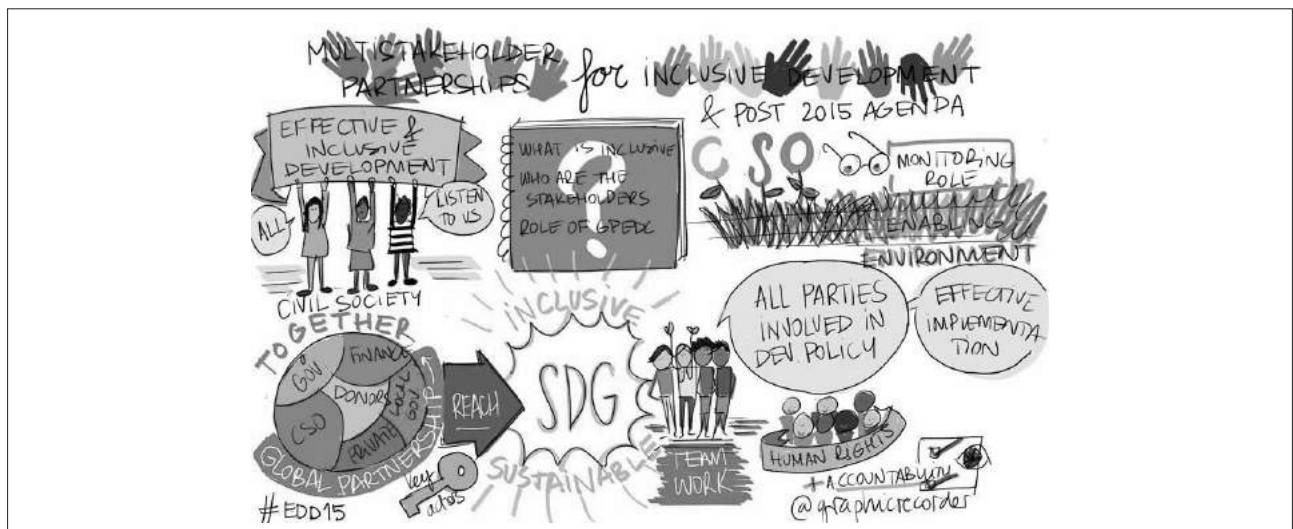 MULTISTAKEHOLDER
PARTNERSHIPS for INCLUSIVE DEVELOPMENT
& POST 2015 AGENDA
EFFECTIVE &
INCLUSIVE
DEVELOPMENT
ALL
LISTEN
TO US
CIVIL SOCIETY
?
WHAT IS INCLUSIVE
WHO ARE THE
STAKEHOLDERS
ROLE OF GPEDC
CSO
MONITORING
ROLE
ENABLING
ENVIRONMENT
TOGETHER
GOV
FINANCE
DONORS
CSO
PRIVATE
GLOBAL PARTNERSHIP
REACH
key
actors
#EDD15
INCLUSIVE
SDG
SUSTAINABLE
TEAM
WORK
ALL PARTIES
INVOLVED IN
DEV POLICY
EFFECTIVE
IMPLEMENTA
TION
HUMAN RIGHTS
+ ACCOUNTABILITY
@graphicrecorder